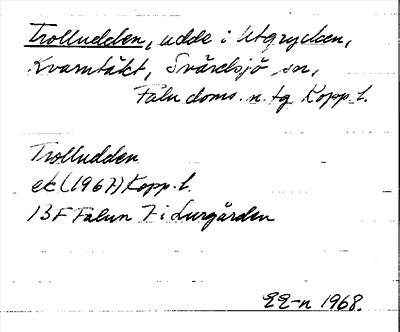 Trolludden, udde i Utgrycken,
Kvarntäkt, Svärdsjö sn,
Falu doms. n. tg Kopp. l.
Trolludden
ek (1967) Kopp. l.
13F Falun 7 i Lurgården
EE-n 1968.